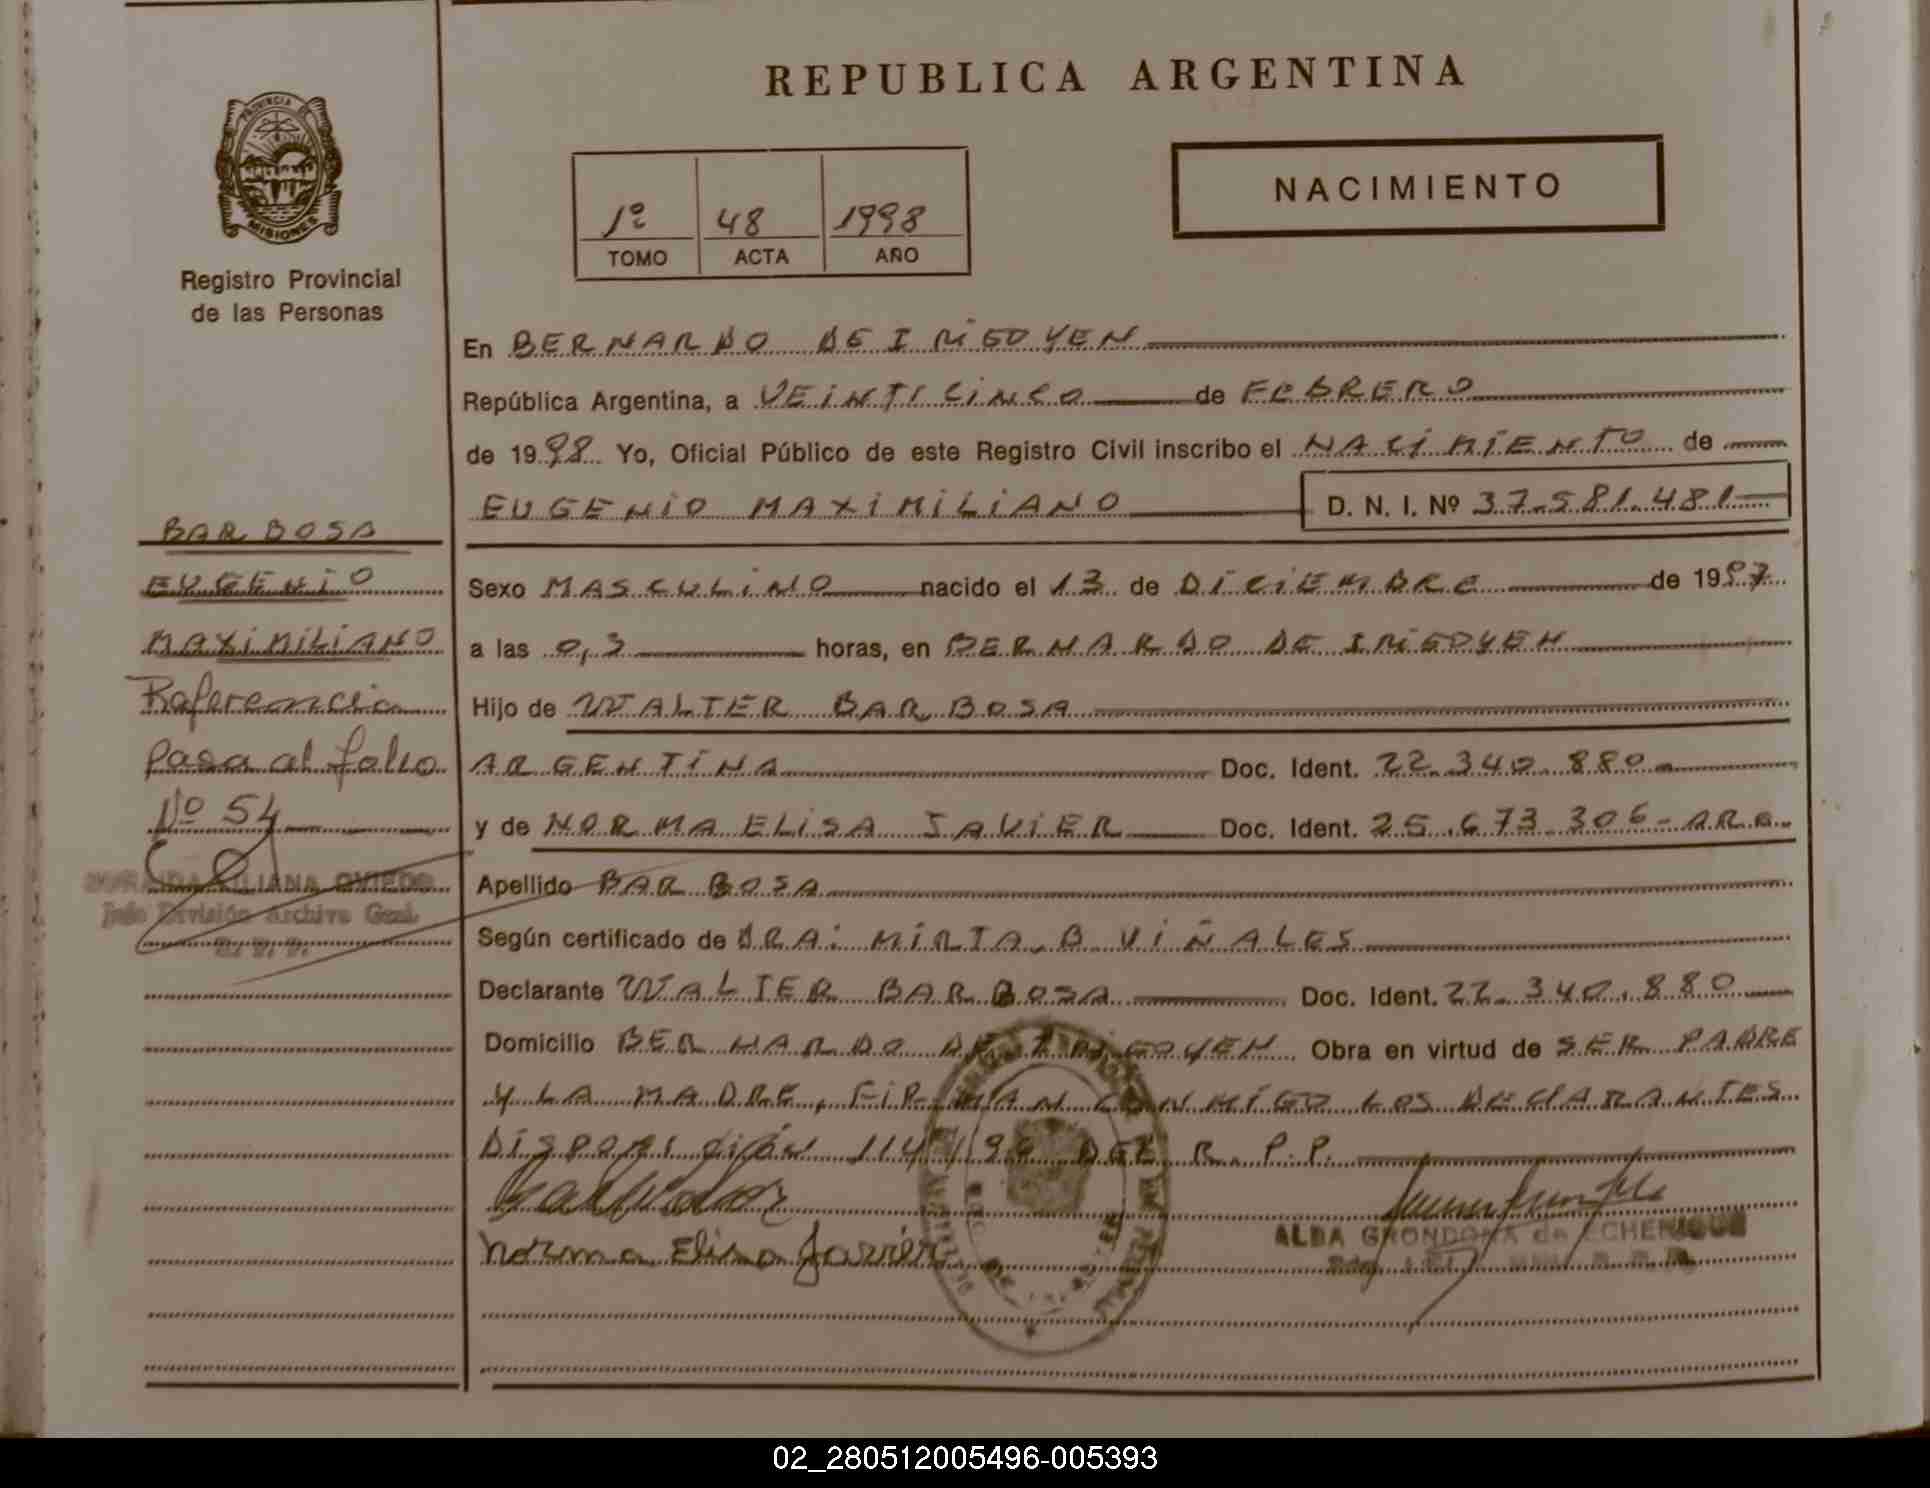 REPUBLICA ARGENTINA
PROVINCIA DE
MISIONES
Registro Provincial
de las Personas
1º 48 1998
TOMO ACTA AÑO
NACIMIENTO
En BERNARDO DE IRIGOYEN
República Argentina, a VEINTICINCO de FEBRERO
de 1998 Yo, Oficial Público de este Registro Civil inscribo el NACIMIENTO de
EUGENIO MAXIMILIANO D. N. I. Nº 37.581.481
BARBOSA
EUGENIO
MAXIMILIANO
Referencia
pasa al folio
Nº 54
LILIANA OVIEDO
Jefe División Archivo Gral.
R. P. P.
Sexo MASCULINO nacido el 13 de DICIEMBRE de 1997
a las 0,3 horas, en BERNARDO DE IRIGOYEN
Hijo de WALTER BARBOSA
ARGENTINA Doc. Ident. 22.340.880
y de NORMA ELISA JAVIER Doc. Ident. 25.673.306-ARG.
Apellido BARBOSA
Según certificado de DRA: MIRTA. B VIÑALES
Declarante WALTER BARBOSA Doc. Ident. 22.340.880
Domicilio BERNARDO DE IRIGOYEN Obra en virtud de SER PADRE
Y LA MADRE, FIRMAN CONMIGO LOS DECLARANTES
DISPOSICIÓN 114/96 DEL R.P.P.
Norma Elisa Javier
ALBA GRONDONA de ECHENIQUE
02_280512005496-005393